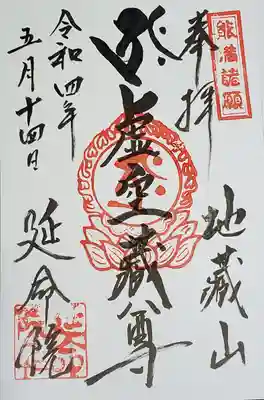 能満諸願
奉拝
地蔵山
虚空蔵尊
令和四年
五月十四日
延命院